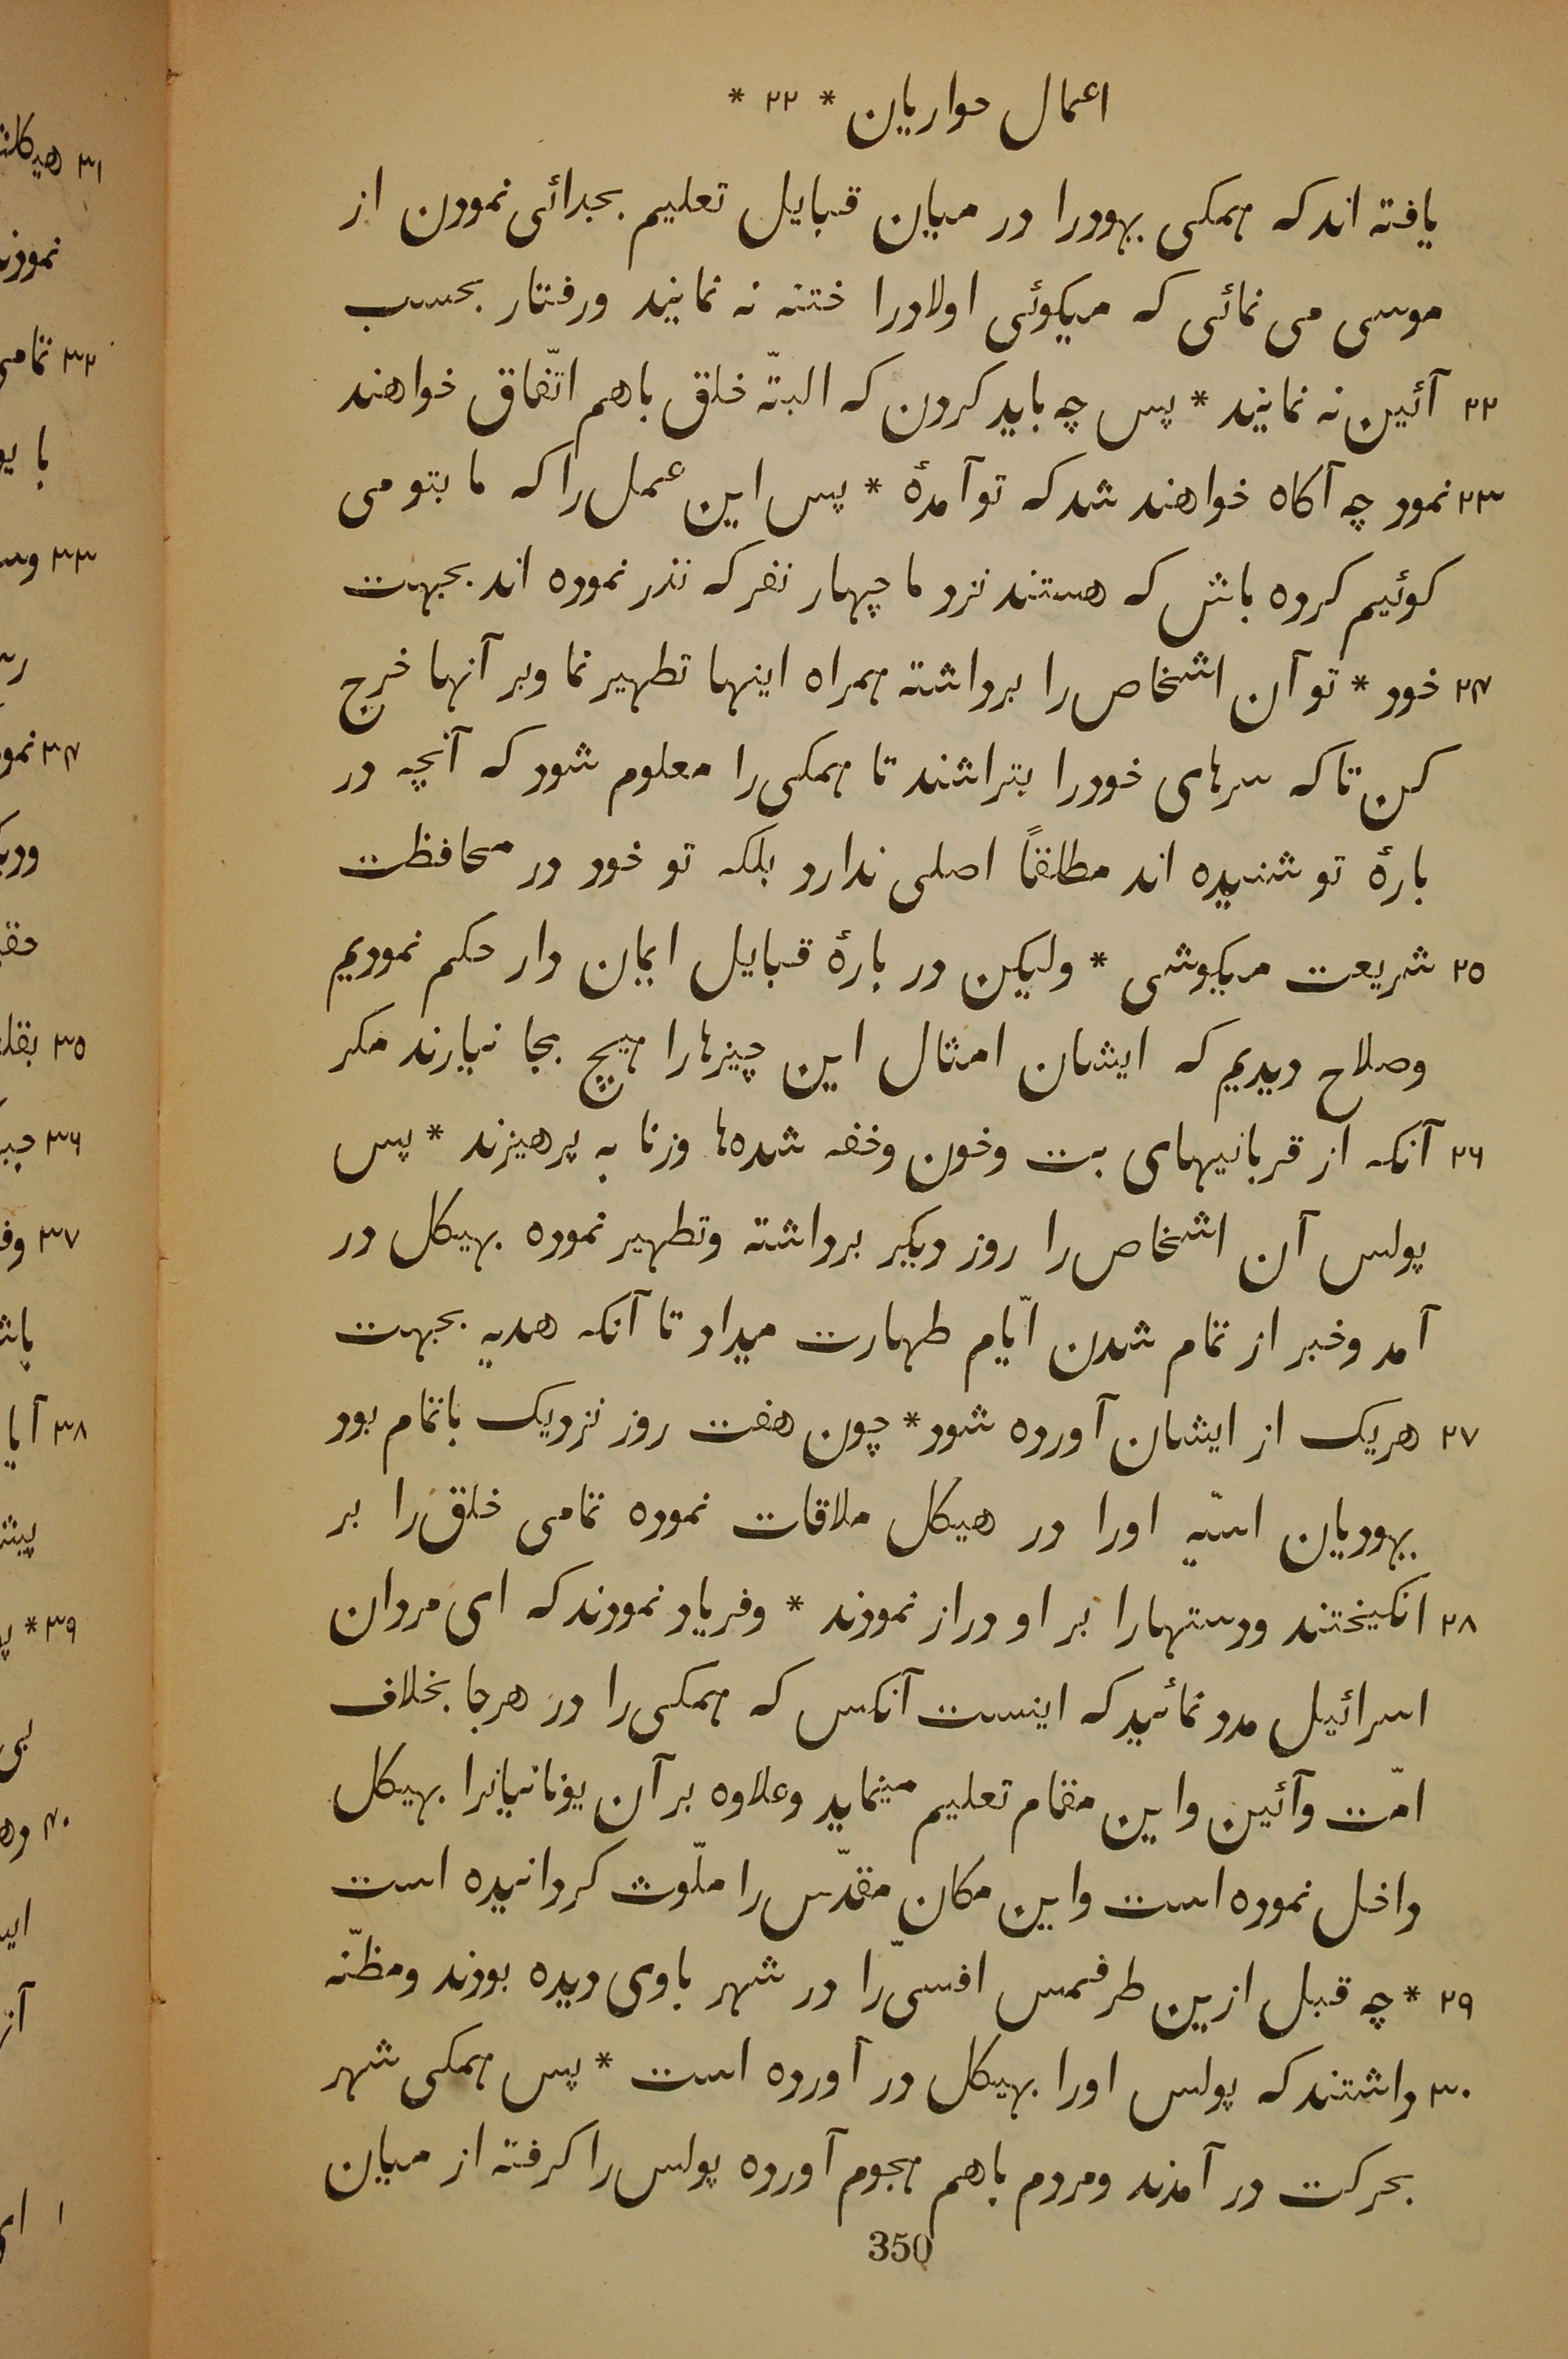 اعمال حواریان * ۲۲ *
یافته اند که همکی یهودرا در میان قبایل تعلیم بجدائی نمودن از
موسی می نمائی که میکوئی اولادرا ختنه نه نمایند ورفتار بحسب
۲۲ آئین نه نمایند * پس چه باید کردن که البتّه خلق باهم اتّفاق خواهند
۲۳ نمود چه آکاه خواهند شد که تو آمدهٔ * پس این عمل را که ما بتو می
کوئیم کرده باش که هستند نزد ما چهار نفر که نذر نموده اند بجهت
۲۴ خود * تو آن اشخاص را برداشته همراه اینها تطهیر نما وبر آنها خرج
کن تا که سرهای خودرا بتراشند تا همکی را معلوم شود که آنچه در
بارهٔ تو شنیده اند مطلقًا اصلی ندارد بلکه تو خود در محافظت
۲۵ شریعت میکوشی * ولیکن در بارهٔ قبایل ایمان دار حکم نمودیم
وصلاح دیدیم که ایشان امثال این چیزها را هیچ بجا نیارند مکر
۲۶ آنکه از قربانیهای بت وخون وخفه شدهها وزنا به پرهیزند * پس
پولس آن اشخاص را روز دیکر برداشته وتطهیر نموده بهیکل در
آمد وخبر از تمام شدن ایّام طهارت میداد تا آنکه هدیه بجهت
۲۷ هریک از ایشان آورده شود * چون هفت روز نزدیک باتمام بود
یهودیان اسّیه اورا در هیکل ملاقات نموده تمامی خلق را بر
۲۸ انکیختند ودستهارا بر او دراز نمودند * وفریاد نمودند که ای مردان
اسرائیل مدد نمائید که اینست آنکس که همکی را در هرجا بخلاف
امّت وآئین واین مقام تعلیم مینماید وعلاوه بر آن یونانیانرا بهیکل
داخل نموده است واین مکان مقدّس را ملّوث کردانیده است
۲۹ * چه قبل ازین طرفمس افسیّ را در شهر باوی دیده بودند ومظنّه
۳۰ داشتند که پولس اورا بهیکل در آورده است * پس همکی شهر
بحرکت در آمدند ومردم باهم هجوم آورده پولس را کرفته از میان
350